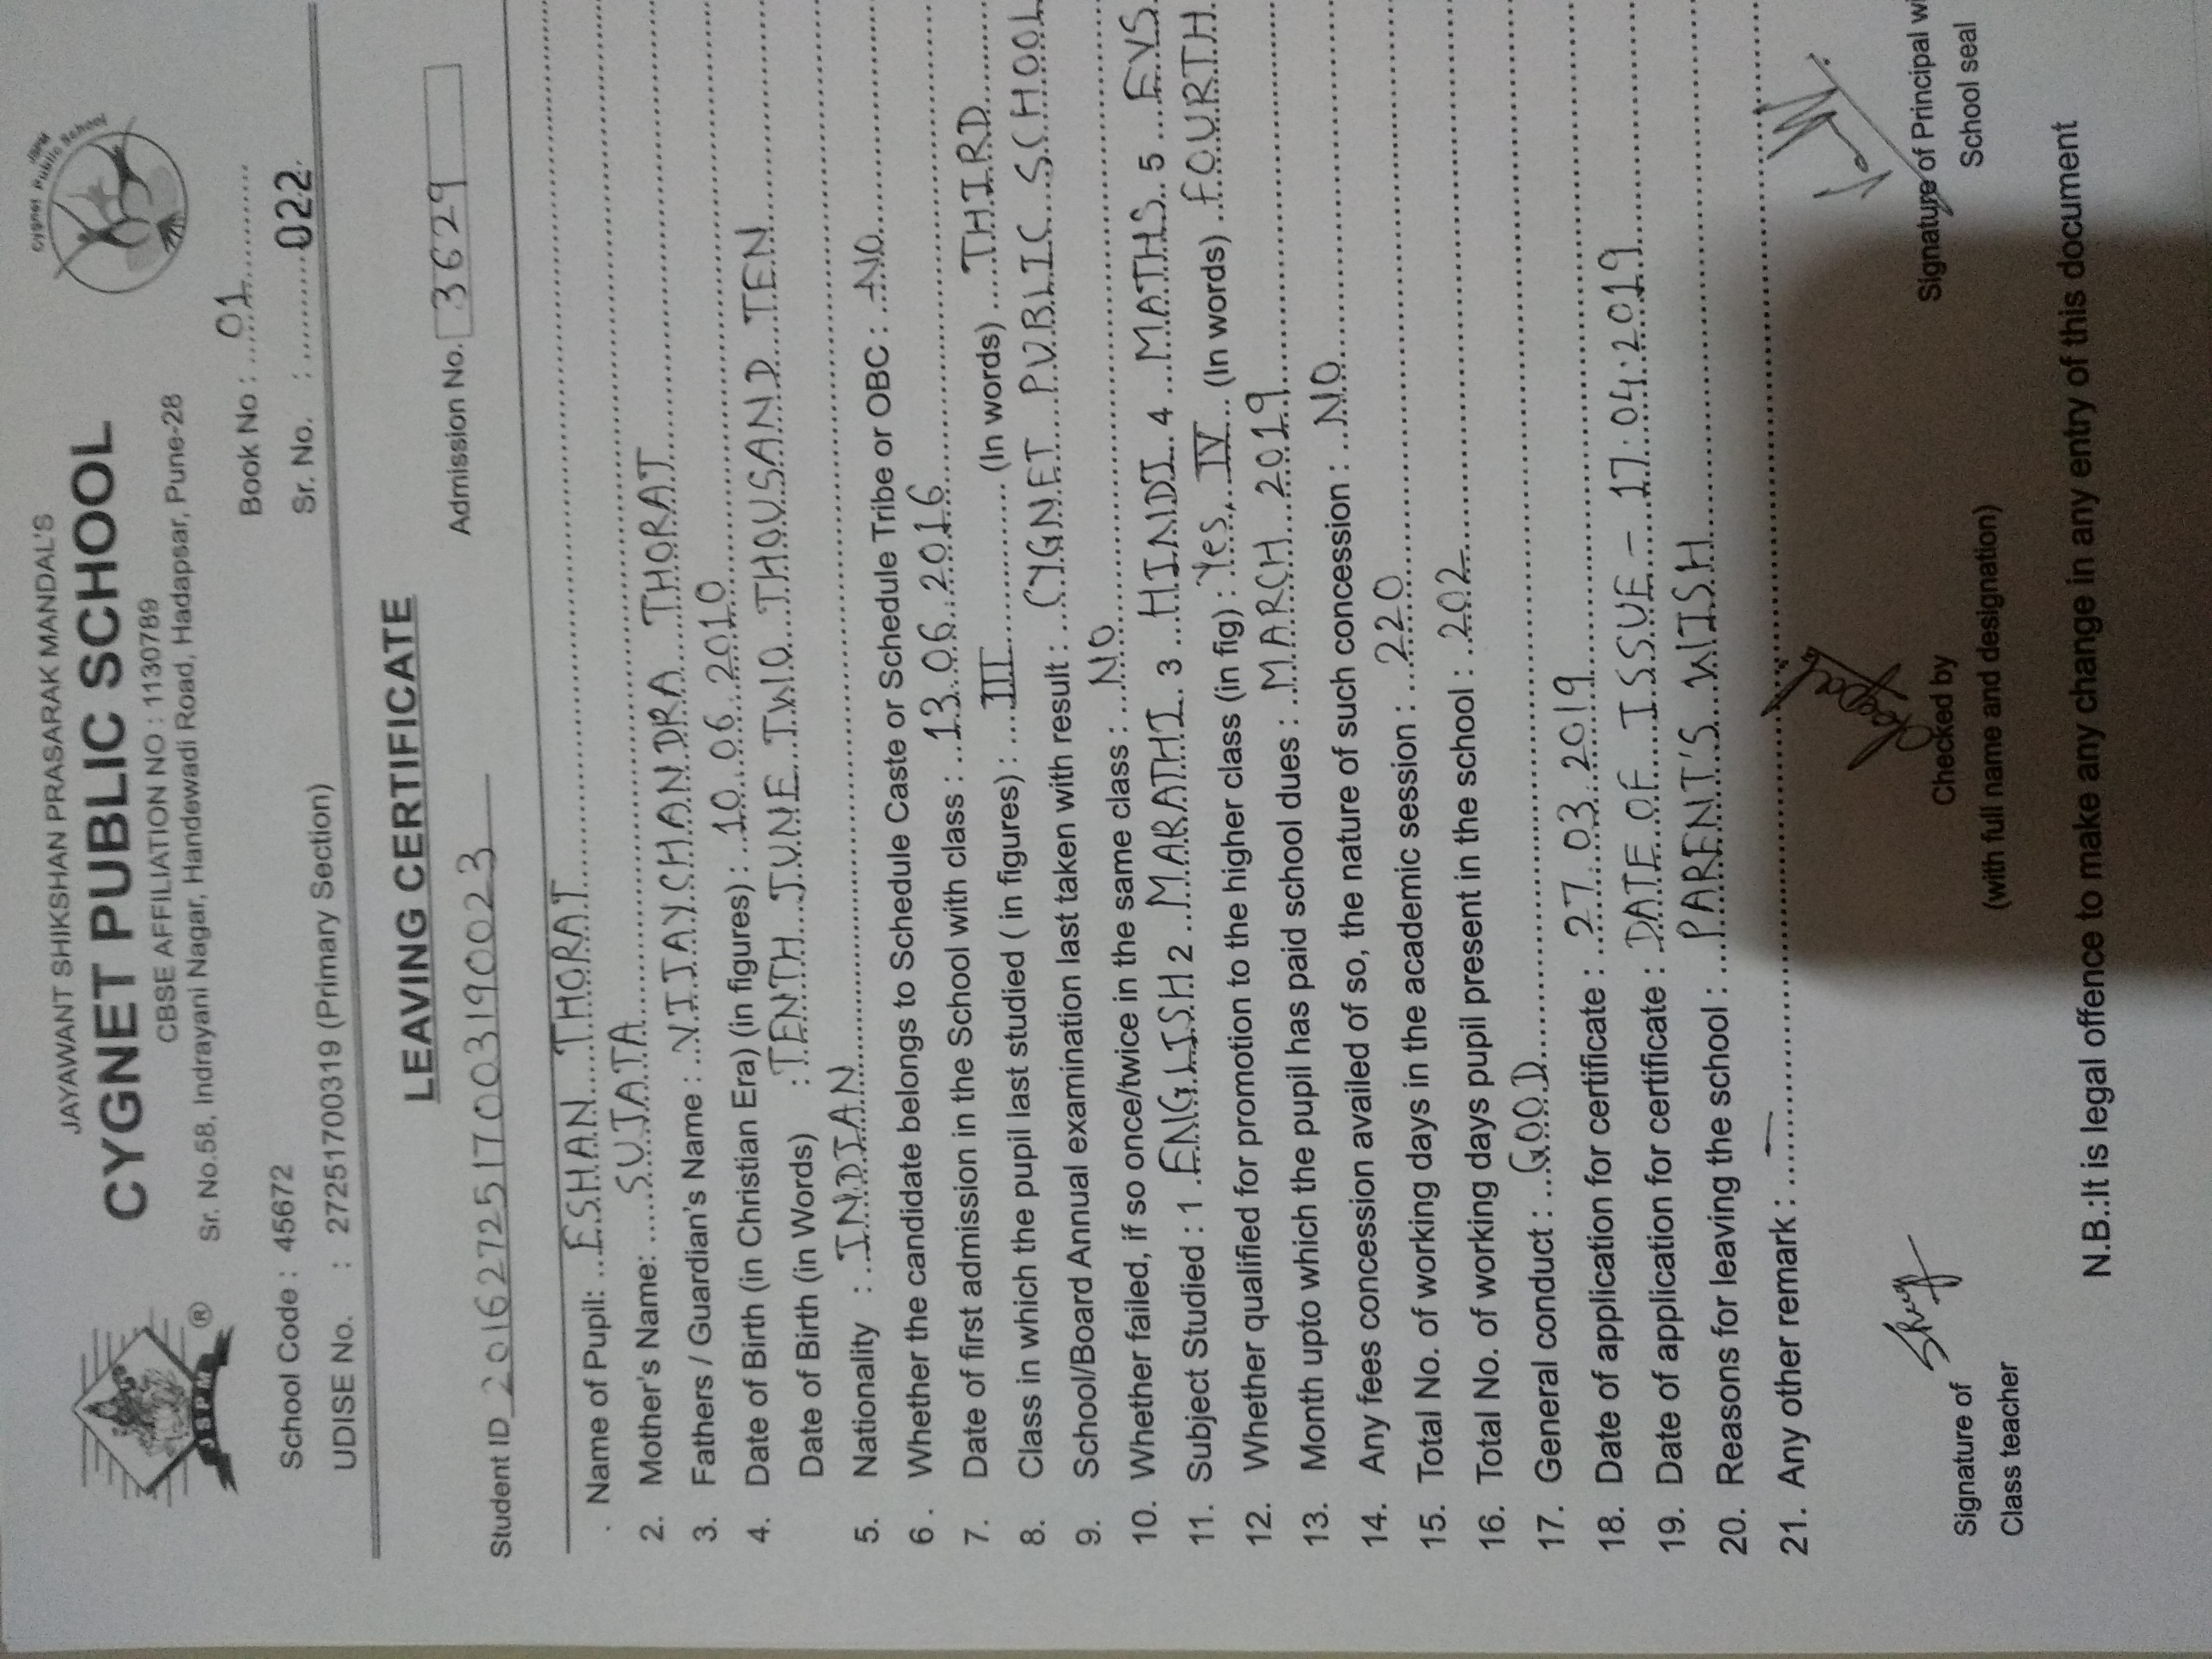 JAYAWANT SHIKSHAN PRASARAK MANDAL'S
CYGNET PUBLIC SCHOOL
CBSE AFFILIATION NO : 1130789
Sr. No.58, Indrayani Nagar, Handewadi Road, Hadapsar, Pune-28
JSPM ®
Cygnet Public School
School Code : 45672
Book No : 01
UDISE No. : 27251700319 (Primary Section)
Sr. No. : 022
LEAVING CERTIFICATE
Student ID 2016272517003190023
Admission No. 3629
. Name of Pupil: ESHAN THORAT
2. Mother's Name: SUJATA
3. Fathers / Guardian's Name : VIJAYCHANDRA THORAT
4. Date of Birth (in Christian Era) (in figures) : 10.06.2010
Date of Birth (in Words) : TENTH JUNE TWO THOUSAND TEN
5. Nationality : INDIAN
6. Whether the candidate belongs to Schedule Caste or Schedule Tribe or OBC : NO
7. Date of first admission in the School with class : 13.06.2016
8. Class in which the pupil last studied ( in figures) : III (In words) THIRD
9. School/Board Annual examination last taken with result : CYGNET PUBLIC SCHOOL
10. Whether failed, if so once/twice in the same class : NO
11. Subject Studied : 1 ENGLISH 2 MARATHI 3 HINDI 4 MATHS 5 EVS
12. Whether qualified for promotion to the higher class (in fig) : Yes, IV (In words) FOURTH
13. Month upto which the pupil has paid school dues : MARCH 2019
14. Any fees concession availed of so, the nature of such concession : NO
15. Total No. of working days in the academic session : 220
16. Total No. of working days pupil present in the school : 202
17. General conduct : GOOD
18. Date of application for certificate : 27.03.2019
19. Date of application for certificate : DATE OF ISSUE - 17.04.2019
20. Reasons for leaving the school : PARENT'S WISH
21. Any other remark : —
Signature of
Class teacher
Checked by
(with full name and designation)
Signature of Principal wi
School seal
N.B.:It is legal offence to make any change in any entry of this document